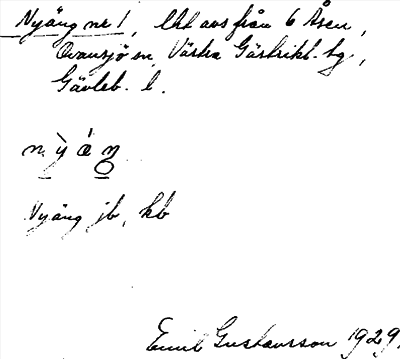 Nyäng nr 1, lht avs från 6 Åsen,
Ovansjö sn, Västra Gästrikl. tg.,
Gävleb. l.
Nyäng jb, kb
Emil Gustavsson 1929.